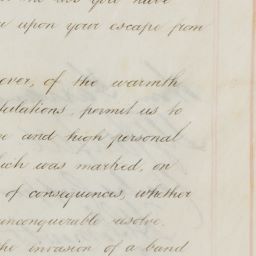 you have
upon your escape from
ever, of the warmth
itations, permit us to
and high personal
which was marked, on
of consequences, whether
unconquerable resolve.
the invasion of a band